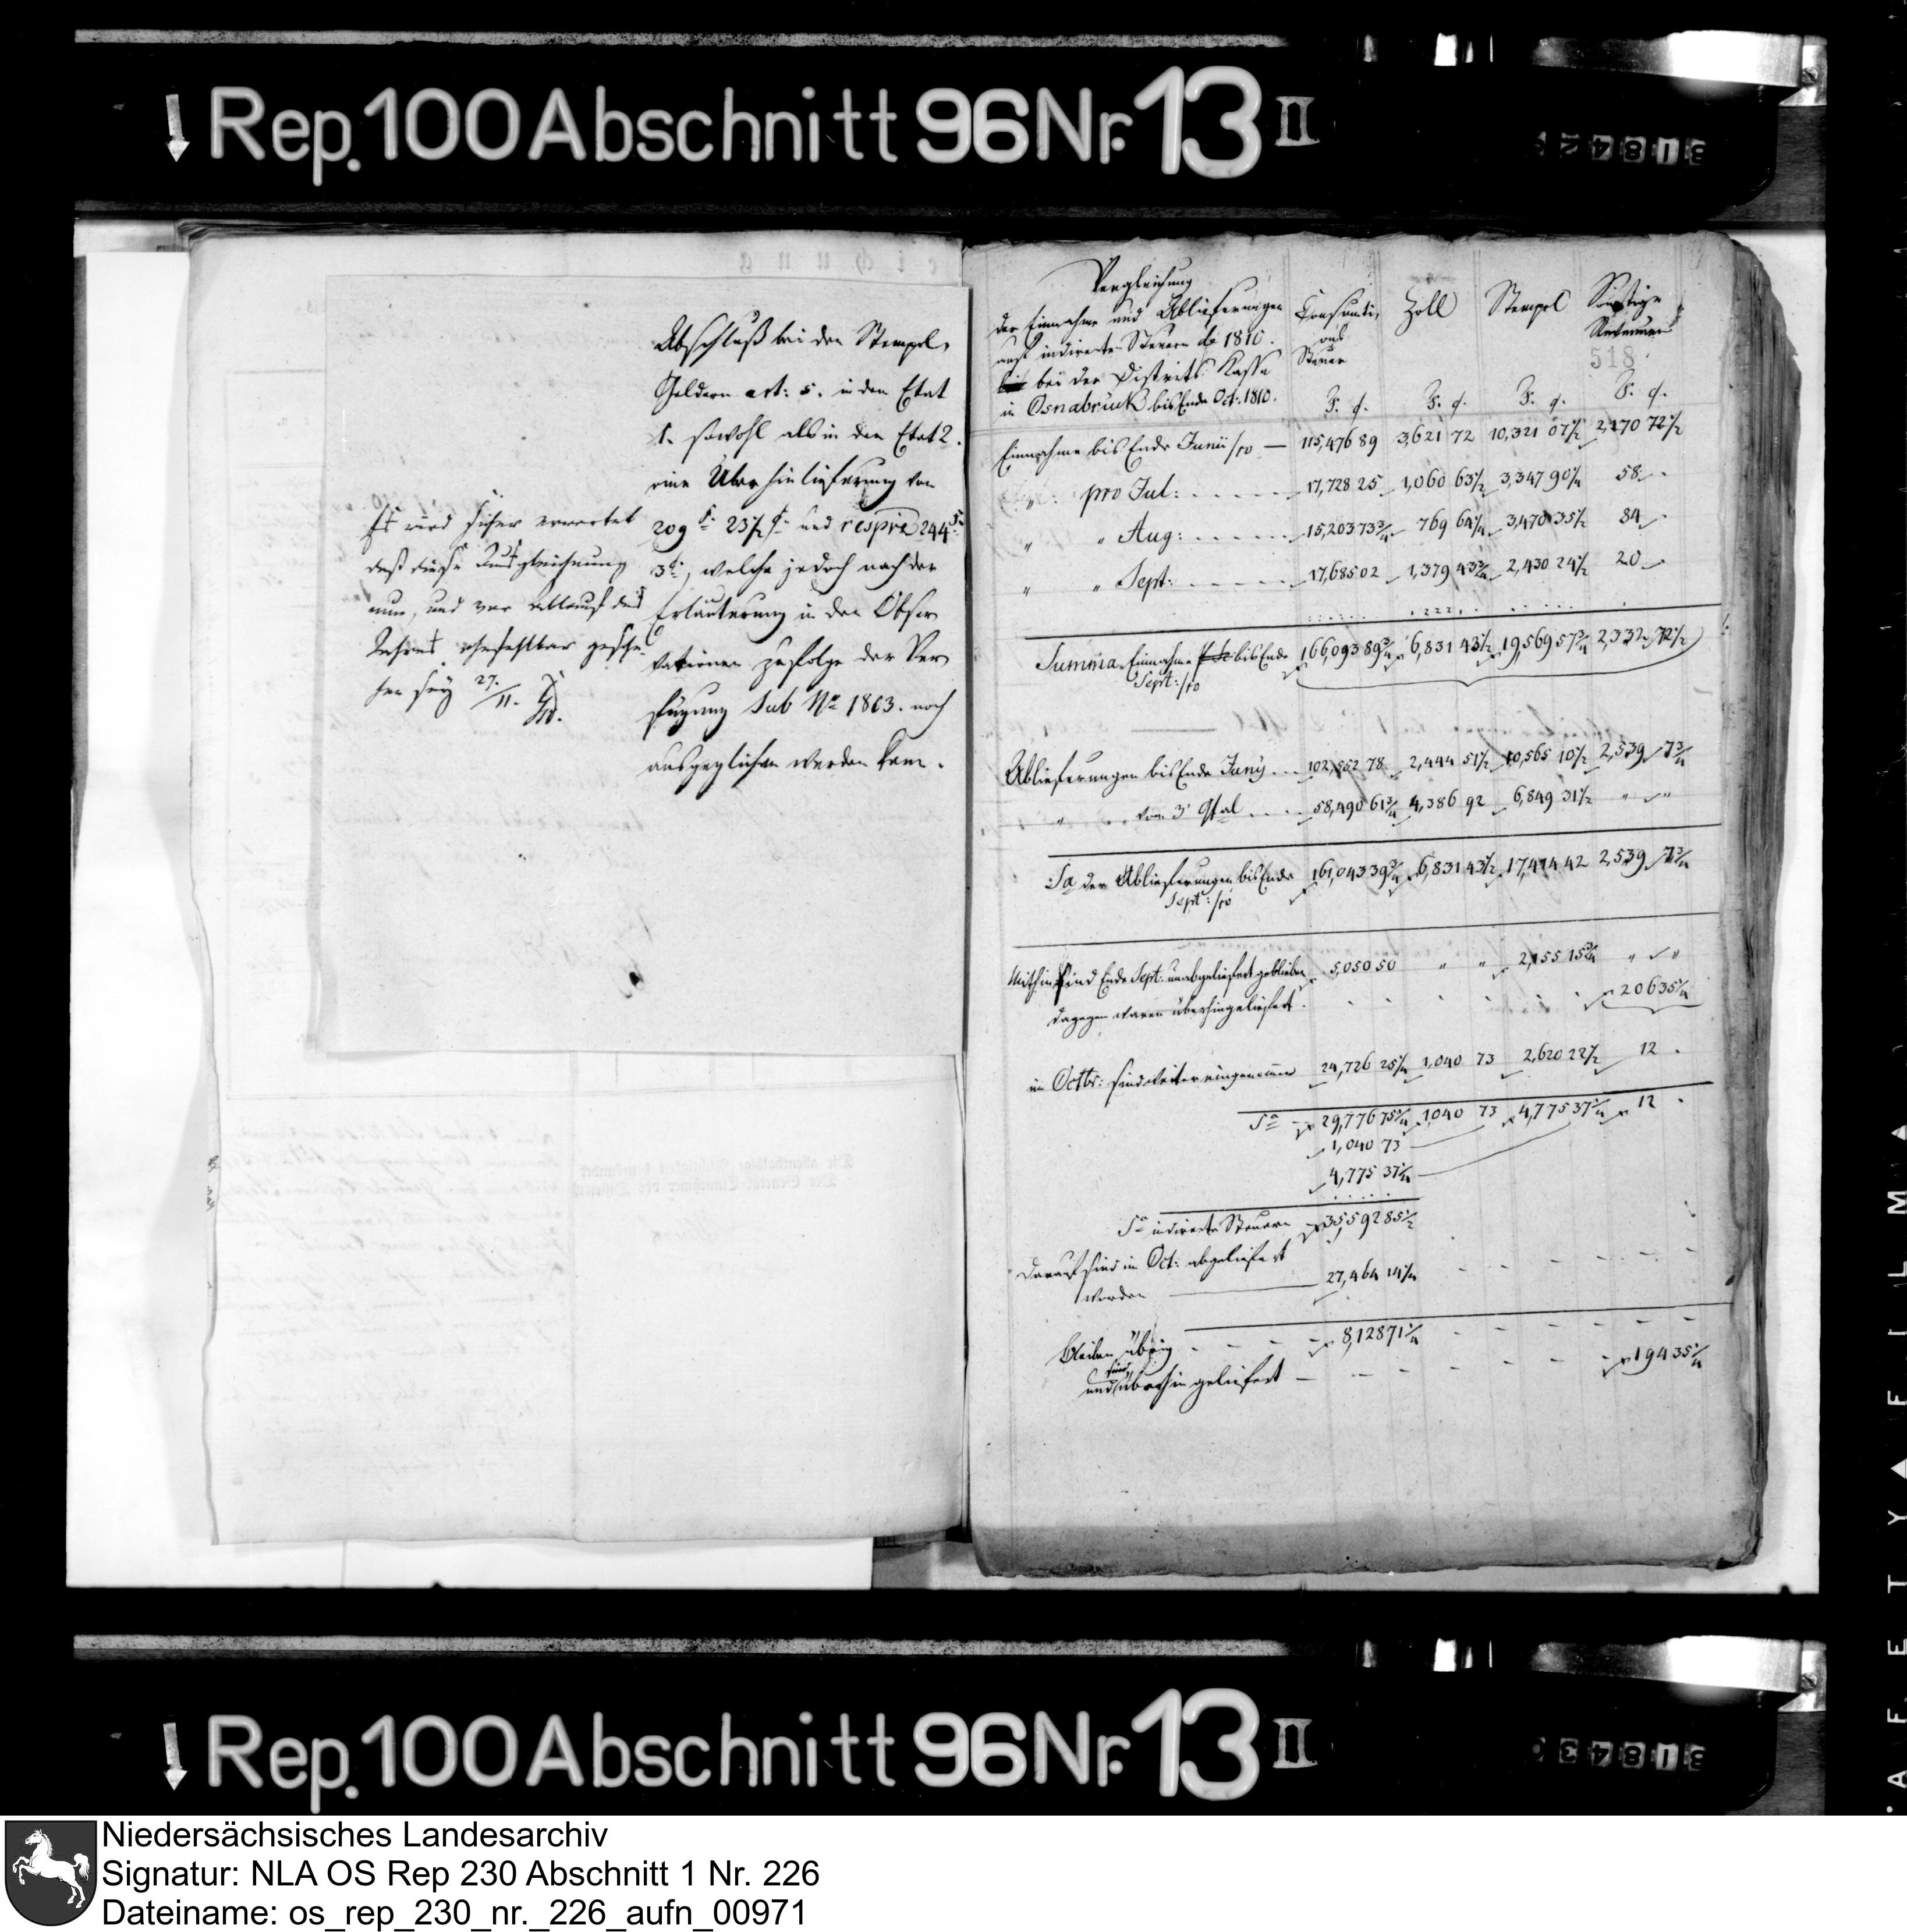 Rep. 100 Abschnitt 96 Nr. 13 II
Abschluß bei den Stempel,
Geldern art: 5. in den Etat
1. sowohl als in den Etat 2.
eine Überhinlieferung von
209 F. 23½ C. und respve 244 F.
3 C., welche jedoch nach der
Erläuterung in den Obser
vationen zufolge der Ver
fügung sub No 1863. noch
ausgeglichen werden kann.
Es wird sicher erwartet
daß diese Ausgleichung
nun, und vor Ablauf des
Jahres ohnfehlbar gesche
hen sey 27./11.
Vergleichung
der Einnahme und Ablieferungen
auf indirecte Steuern de 1810.
bei der Distrits Kasse
in Osnabrück bis Ende Oct: 1810.
Consumti, ons Steuer
Zoll
Stempel
Sonstige Revenuen
518
F. C. F. C. F. C. F. C.
Einnahme bis Ende Junii/10 — 115,476 89 3,621 72 10,321 07½ 2,170 72½
" pro Jul: 17,728 25 1,060 63½ 3,347 90¼ 58 -
" " Aug: 15,203 73¾ 769 64¼ 3,470 35½ 84 -
" " Sept: 17,685 02 1,379 43¾ 2,430 24½ 20 -
Summa Einnahme bis Ende Sept:/10 166,093 89¾ 6,831 43½ 19,569 57¾ 2,332 72½
Ablieferungen bis Ende Juny 102,552 78 2,444 51½ 10,565 10½ 2,539 7¾
" vom 3t Qtal 58,490 61¾ 4,386 92 6,849 31½ " "
Sa der Ablieferungen bis Ende Sept:/10 161,043 39¾ 6,831 43½ 17,414 42 2,539 7¾
Mithin sind Ende Sept: unabgeliefert geblieben 5,050 50 " " 2,155 15¾ " "
dagegen waren überhingeliefert 206 35¼
im Octbr: sind weiter eingenommen 24,726 25¼ 1,040 73 2,620 22½ 12 .
Sa 29,776 75¼ 1,040 73 4,775 37¼ 12 .
1,040 73
4,775 37¼
Sa indirecte Steuern 35,592 85½
Darauf sind im Oct: abgeliefert
worden 27,464 14¼
Bleiben übrig 8,128 71¼
und sind überhin geliefert — 194 35¼
Rep. 100 Abschnitt 96 Nr. 13 II
Niedersächsisches Landesarchiv
Signatur: NLA OS Rep 230 Abschnitt 1 Nr. 226
Dateiname: os_rep_230_nr._226_aufn_00971